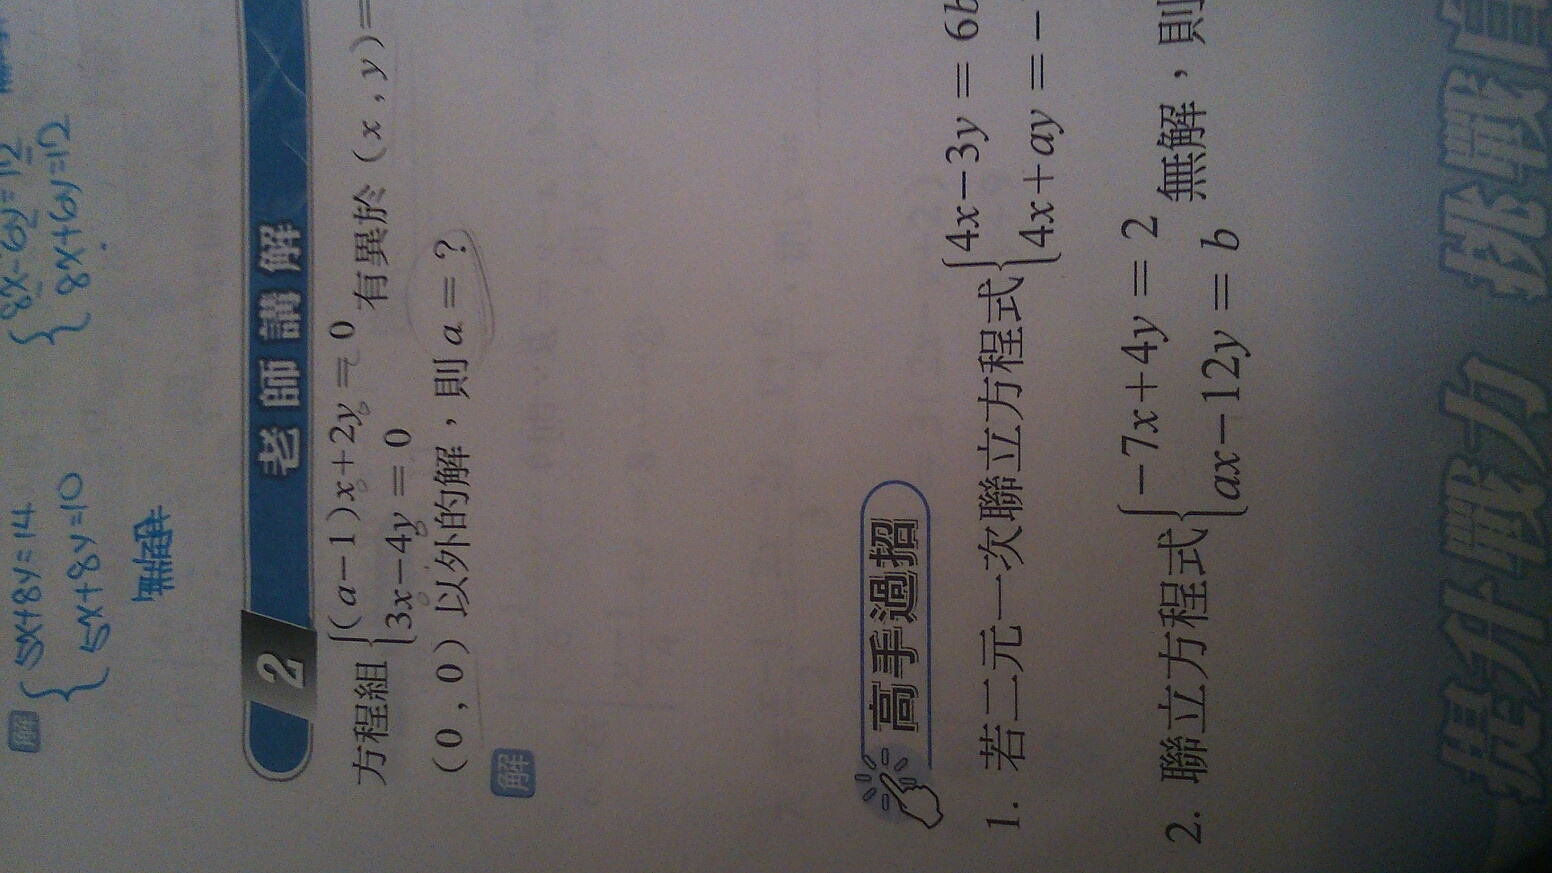 解
{5x+8y=14
{5x+8y=10
無解
{8x-6y=12
{8x+6y=12
2 老師講解
方程組{(a-1)x+2y=0
{3x-4y=0 有異於(x,y)=
(0,0)以外的解,則a=?
解
高手過招
1. 若二元一次聯立方程式{4x-3y=6b
{4x+ay=-
2. 聯立方程式{-7x+4y=2
{ax-12y=b 無解,則
提升戰力 挑戰